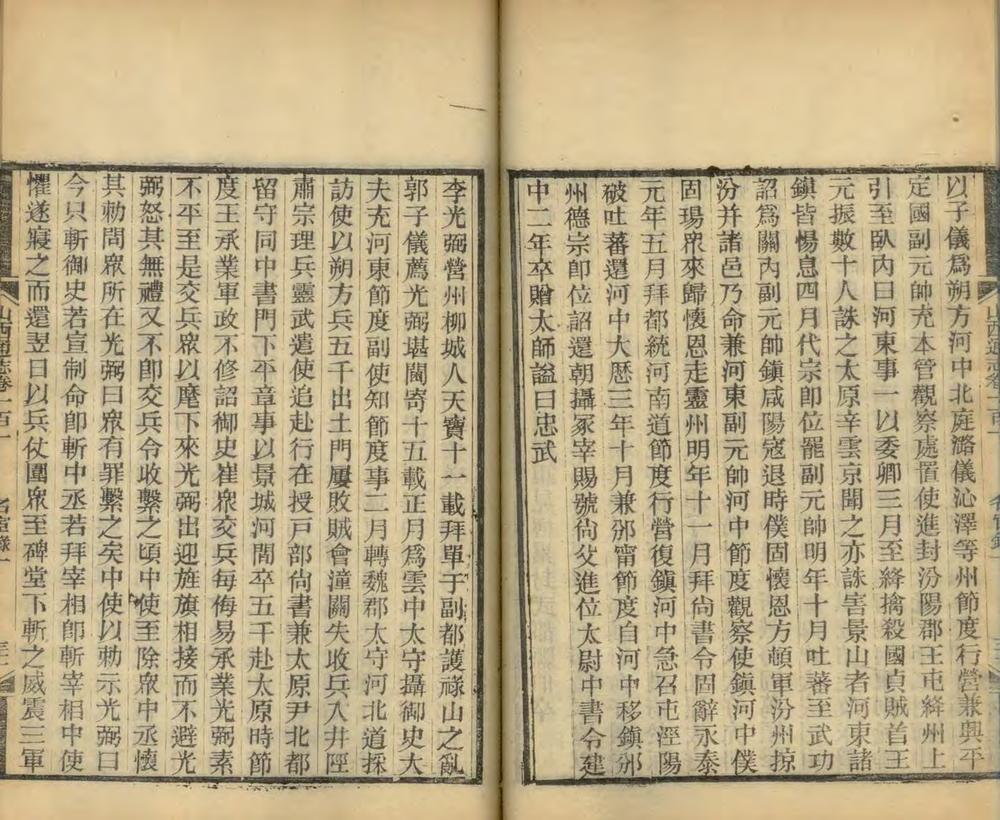 以子儀爲朔方河中北庭潞儀沁澤等州節度行營兼興平
定國副元帥充本管觀察處置使進封汾陽郡王屯絳州上
引至臥內曰河東事一以委卿三月至絳擒殺國貞賊首王
元振數十人誅之太原辛雲京聞之亦誅害景山者河東諸
鎮皆惕息四月代宗卽位罷副元帥明年十月吐蕃至武功
詔爲關內副元帥鎮咸陽寇退時僕固懷恩方頓軍汾州掠
汾并諸邑乃命兼河東副元帥河中節度觀察使鎮河中僕
固瑒眾來歸懷恩走靈州明年十一月拜尙書令固辭永泰
元年五月拜都統河南道節度行營復鎮河中急召屯涇陽
破吐蕃還河中大厯三年十月兼邠甯節度自河中移鎮邠
州德宗卽位詔還朝攝冢宰賜號尙父進位太尉中書令建
中二年卒贈太師謚曰忠武
李光弼營州柳城人天寶十一載拜單于副都護祿山之亂
郭子儀薦光弼堪閫寄十五載正月爲雲中太守攝御史大
夫充河東節度副使知節度事二月轉魏郡太守河北道採
訪使以朔方兵五千出土門屢敗賊會潼關失收兵入井陘
肅宗理兵靈武遣使追赴行在授戸部尙書兼太原尹北都
留守同中書門下平章事以景城河間卒五千赴太原時節
度王承業軍政不修詔御史崔眾交兵每侮易承業光弼素
不平至是交兵眾以麾下來光弼出迎旌旗相接而不避光
弼怒其無禮又不卽交兵令收繫之頃中使至除眾中丞懷
其勅問眾所在光弼曰眾有罪繫之矣中使以勅示光弼曰
今只斬御史若宣制命卽斬中丞若拜宰相卽斬宰相中使
懼遂寢之而還翌日以兵仗圍眾至碑堂下斬之威震三軍
山西通志卷一百一
名宦錄一